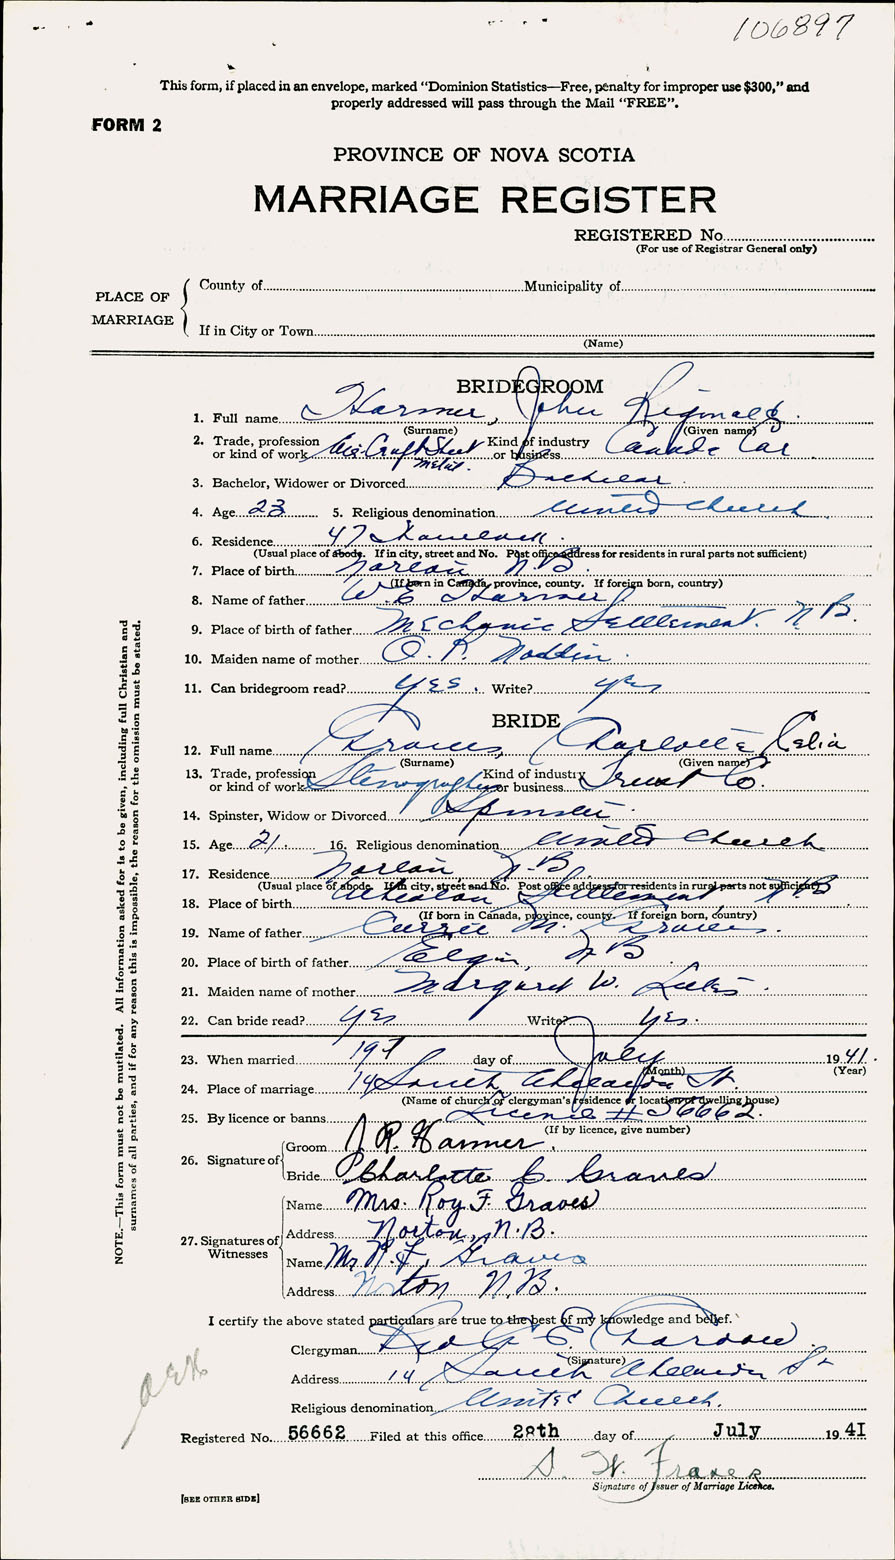 106897
This form, if placed in an envelope, marked “Dominion Statistics—Free, penalty for improper use $300,” and
properly addressed will pass through the Mail “FREE”.
FORM 2
PROVINCE OF NOVA SCOTIA
MARRIAGE REGISTER
REGISTERED No.
(For use of Registrar General only)
PLACE OF MARRIAGE
County of Municipality of
If in City or Town
(Name)
BRIDEGROOM
1. Full name Harmer, John Reginald
(Surname) (Given name)
2. Trade, profession or kind of work Air Craft Sheet Metal Kind of industry or business Canada Car
3. Bachelor, Widower or Divorced Bachelor
4. Age 23 5. Religious denomination United Church
6. Residence 47
(Usual place of abode. If in city, street and No. Post office address for residents in rural parts not sufficient)
7. Place of birth Norton N.B.
(If born in Canada, province, county. If foreign born, country)
8. Name of father W. E. Harmer
9. Place of birth of father Mechanic Settlement. N.B.
10. Maiden name of mother O. P. Noddin
11. Can bridegroom read? Yes. Write? yes
BRIDE
12. Full name Graves, Charlotte Celia
(Surname) (Given name)
13. Trade, profession or kind of work Stenographer Kind of industry or business Trust Co.
14. Spinster, Widow or Divorced Spinster
15. Age 21. 16. Religious denomination United Church
17. Residence Norton N-B
(Usual place of abode. If in city, street and No. Post office address for residents in rural parts not sufficient)
18. Place of birth Settlement N.B
(If born in Canada, province, county. If foreign born, country)
19. Name of father Currie M. Graves.
20. Place of birth of father Elgin, N B
21. Maiden name of mother Margaret W.
22. Can bride read? Yes Write? Yes.
23. When married 19th day of July 1941.
(Month) (Year)
24. Place of marriage 14 South St.
(Name of church or clergyman's residence or location of dwelling house)
25. By licence or banns Licence # 56662.
(If by licence, give number)
26. Signature of Groom J. R. Harmer.
Bride Charlotte C. Graves
27. Signatures of Witnesses
Name Mrs. Roy F. Graves
Address Norton, N.B.
Name Mr. R. F. Graves
Address Norton N.B.
I certify the above stated particulars are true to the best of my knowledge and belief.
Clergyman
(Signature)
Address 14 South St
Religious denomination United Church.
Registered No. 56662 Filed at this office 28th day of July 1941
S. W. Fraser
Signature of Issuer of Marriage Licence.
[SEE OTHER SIDE]
NOTE.—This form must not be mutilated. All Information asked for is to be given, including full Christian and
surnames of all parties, and if for any reason this is impossible, the reason for the omission must be stated.